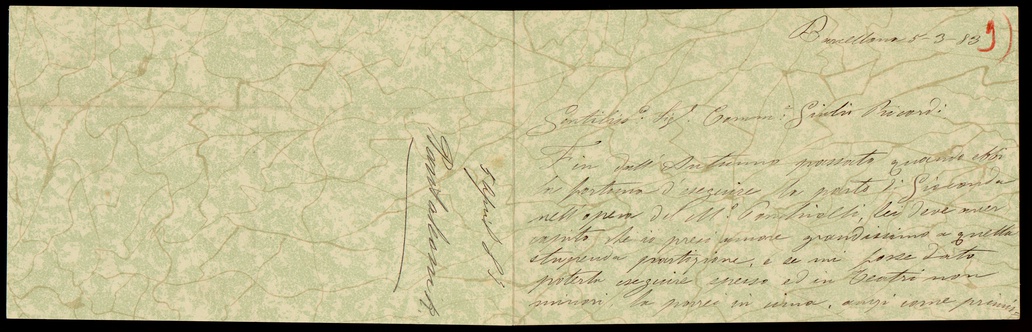 Barcellona 5-3-83
9)
Gentiliss.º Sig.r Comm.r Giulio Ricordi
Fin dall'Autunno passato quando ebbi
la fortuna d'eseguire la parte di Gioconda
nell'opera del M.º Ponchielli, Lei deve aver
capito che io presi amore grandissimo a quella
stupenda partizione, e se mi fosse dato
poterla eseguire spesso ed in Teatri non
minori la porrei in cima, anzi come primis=
5 Aprile 83
Pantaleoni